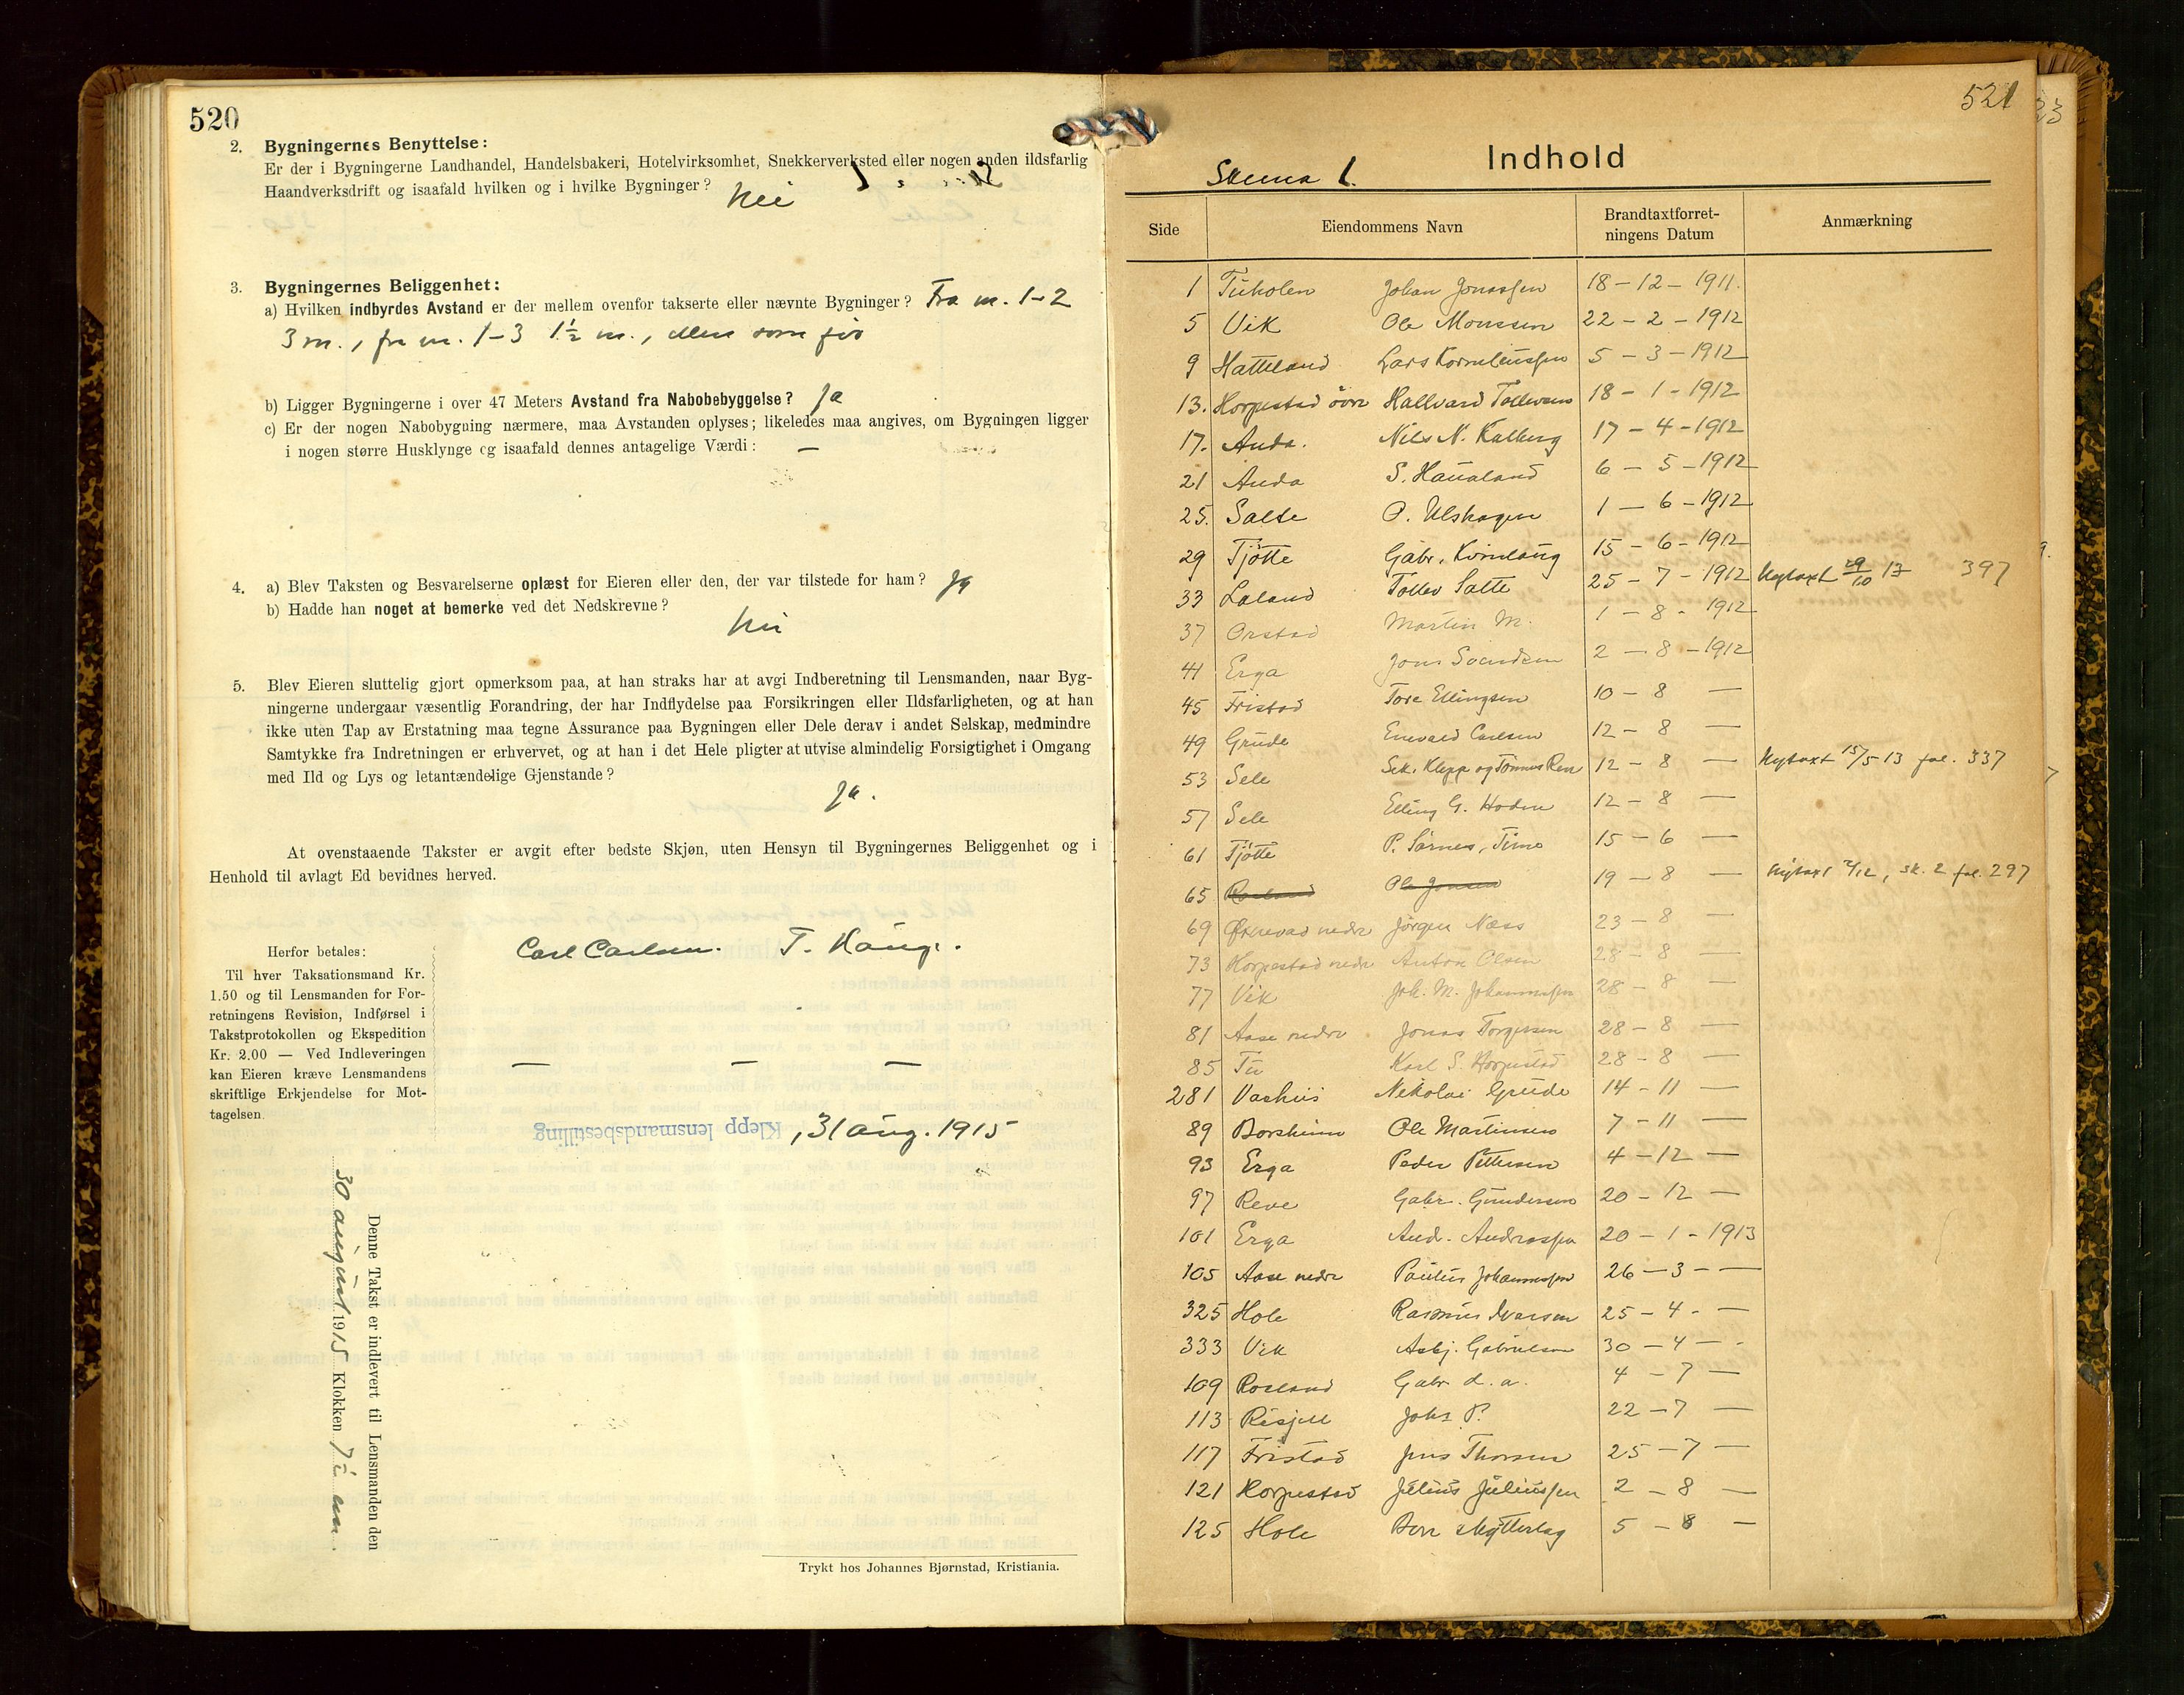 520
2. Bygningernes Benyttelse:
Er der i Bygningerne Landhandel, Handelsbakeri, Hotelvirksomhet, Snekkerverksted eller nogen anden ildsfarlig
Haandverksdrift og isaafald hvilken og i hvilke Bygninger? Nei
3. Bygningernes Beliggenhet:
a) Hvilken indbyrdes Avstand er der mellem ovenfor takserte eller nævnte Bygninger? Fra m. 1-2
3 m., fra m. 1-3 1½ m., ellers som før
b) Ligger Bygningerne i over 47 Meters Avstand fra Nabobebyggelse? Ja
c) Er der nogen Nabobygning nærmere, maa Avstanden oplyses; likeledes maa angives, om Bygningen ligger
i nogen større Husklynge og isaafald dennes antagelige Værdi: —
4. a) Blev Taksten og Besvarelserne oplæst for Eieren eller den, der var tilstede for ham? Ja
b) Hadde han noget at bemerke ved det Nedskrevne?
Nei
5. Blev Eieren sluttelig gjort opmerksom paa, at han straks har at avgi Indberetning til Lensmanden, naar Byg-
ningerne undergaar væsentlig Forandring, der har Indflydelse paa Forsikringen eller Ildsfarligheten, og at han
ikke uten Tap av Erstatning maa tegne Assurance paa Bygningen eller Dele derav i andet Selskap, medmindre
Samtykke fra Indretningen er erhvervet, og at han i det Hele pligter at utvise almindelig Forsigtighet i Omgang
med Ild og Lys og letantændelige Gjenstande?
Ja.
At ovenstaaende Takster er avgit efter bedste Skjøn, uten Hensyn til Bygningernes Beliggenhet og i
Henhold til avlagt Ed bevidnes herved.
Carl Carlsen. T. Haug.
Herfor betales:
Til hver Taksationsmand Kr.
1.50 og til Lensmanden for For-
retningens Revision, Indførsel i
Takstprotokollen og Ekspedition
Kr. 2.00 — Ved Indleveringen
kan Eieren kræve Lensmandens
skriftlige Erkjendelse for Mot-
tagelsen.
— — —
Klepp lensmandsbestilling, 31 aug. 1915
Denne Takst er indlevert til Lensmanden den
30 august 1915 Klokken 7 e m.
Trykt hos Johannes Bjørnstad, Kristiania.
521
Indhold
Skema 1.
Side Eiendommens Navn Brandtaxtforret-ningens Datum Anmærkning
1 Tuholen Johan Jonassen 18-12-1911.
5 Vik Ole Monssen 22-2-1912
9 Hatteland Lars Korneliussen 5-3-1912
13. Horpestad övre Hallvard Tollevsen 18-1-1912
17. Anda. Nils N. Kalberg 17-4-1912
21 Anda S. Haualand 6-5-1912
25. Salte O. Ulshagen 1-6-1912
29 Tjötte Gabr. Kvinlaug 15-6-1912
33 Laland Tollev Salte 25-7-1912 Nytaxt 29/10 13 397
37 Orstad Martin M. 1-8-1912
41 Erga Jons Svendsen 2-8-1912
45 Fristad Tore Ellingsen 10-8 —
49 Grude Enevald Carlsen 12-8 —
53 Sele Sek. Klepp og Tönnes Reve 12-8 — Nytaxt 15/5-13 fol. 337
57 Sele Elling G. Hodne 12-8 —
61 Tjötte P. Sörnes, Time 15-6 —
65 Roeland Ole Jonsen 19-8 — Nytaxt /12, sk. 2 fol. 297
69 Öxnevad nedre Jörgen Næss 23-8 —
73 Horpestad nedre Anton Olsen 28-8 —
77 Vik Joh. M. Johannessen 28-8 —
81 Aase nedre Jonas Torgersen 28-8 —
85 Tu Karl S. Horpestad 28-8 —
281 Vashus Nikolai Grude 14-11 —
89 Borsheim Ole Martinsen 7-11 —
93 Erga Peder Pettersen 4-12 —
97 Reve Gabr. Gundersen 20-12 —
101 Erga Andr. Andreassen 20-1-1913
105 Aase nedre Paulus Johannessen 26-3- —
325 Hole Rasmus Iversen 25-4- —
333 Vik Asbj. Gabrielsen 30-4 —
109 Roeland Gabr. L. a. 4-7 —
113 Risjell Johs P. 22-7 —
117 Fristad Jens Thorsen 25-7 —
121 Horpestad Julius Juliussen 2-8 —
125 Hole Bore skytterlag 5-8 —